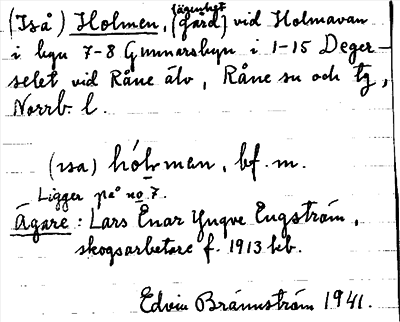 (Iså) Holmen, lägenhet (gård) vid Holmavan
i hgn 7-8 Gunnarsbyn i 1-15 Deger-
selet vid Råne älv, Råne sn och tg,
Norrb. l.
(ısa) hólman, bf. m.
Ligger på no 7.
Ägare: Lars Enar Yngve Engström,
skogsarbetare f. 1913 hb.
Edvin Brännström 1941.